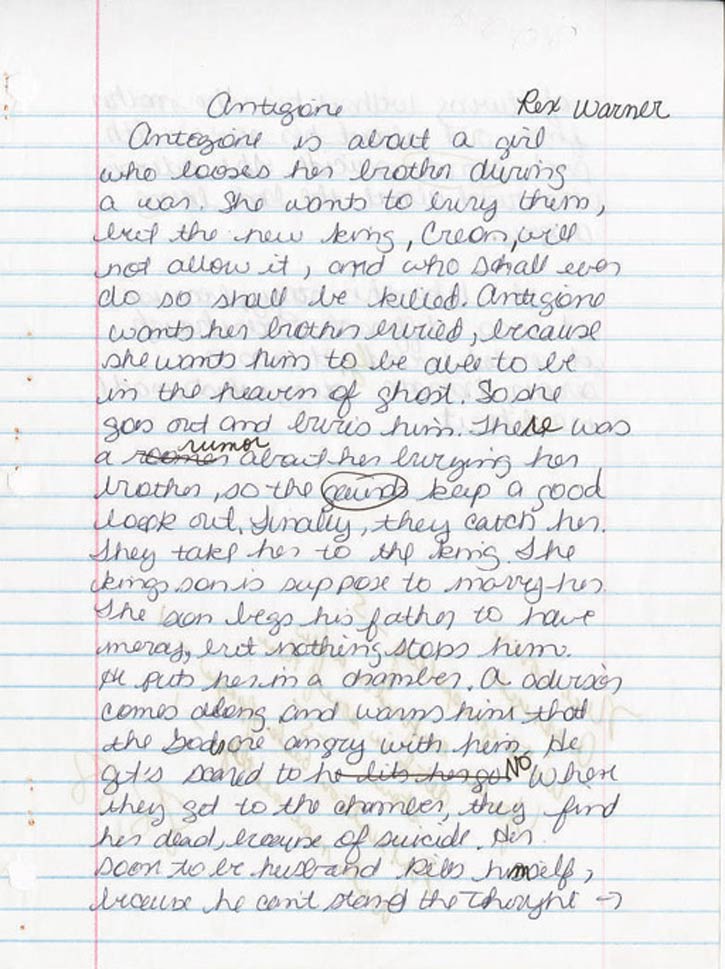 Antigione Rex Warner
Antogione is about a girl
who looses her brother during
a war. She wants to bury them,
but the new king, Creon, will
not allow it, and who shall ever
do so shall be killed. Antigione
wants her brother buried, because
she wants him to be able to be
in the heaven of ghost. So she
goes out and buris him. There was
rumor
a about her burying her
brother, so the gaurds keep a good
look out. Finally, they catch her.
They take her to the king. The
kings son is suppose to marry her.
The son begs his father to have
mercy, but nothing stops him.
He puts her in a chamber. A advisor
comes along and warns him that
the Gods are angry with him. He
get's scared to he lets her go. NO When
they get to the chamber, they find
her dead, because of suicide. Her
soon to be husband kills himself,
because he can't stand the thought →